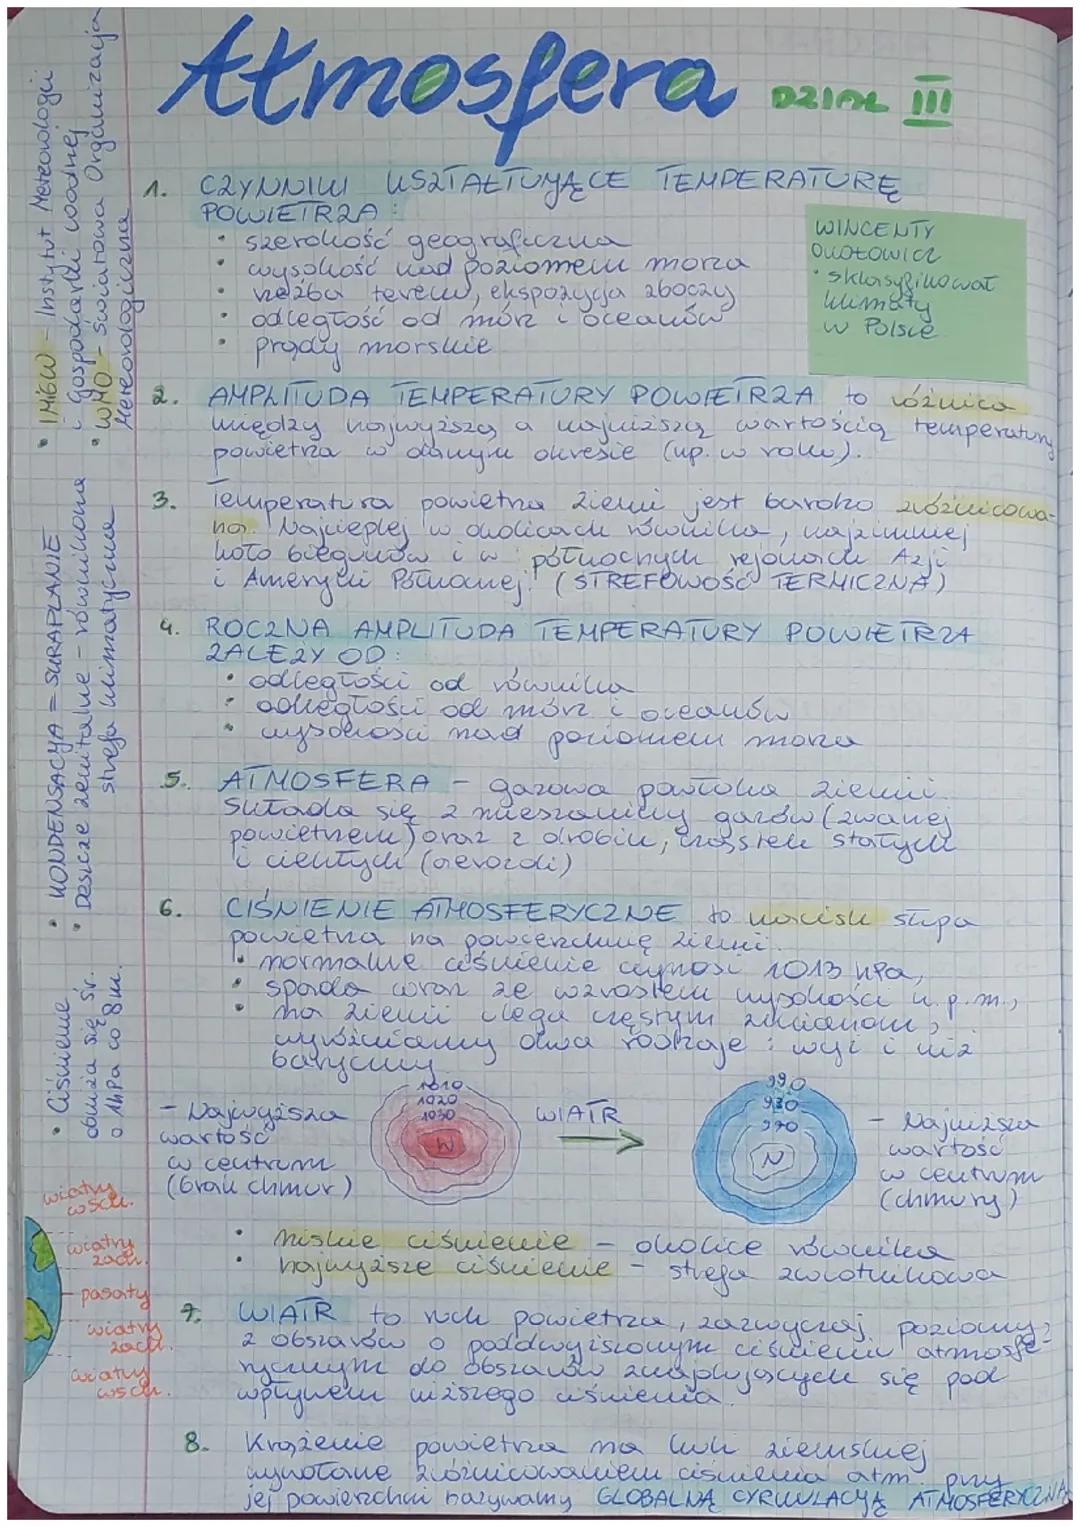 Atmosfera DZIAŁ III
1. CZYNNIKI KSZTAŁTUJĄCE TEMPERATURĘ
POWIETRZA:
• szerokość geograficzna
• wysokość nad poziomem morza
• rzeźba terenu, ekspozycja zboczy
• odległość od mórz i oceanów
• prądy morskie
WINCENTY
OKOŁOWICZ
• sklasyfikował
klimaty
w Polsce
2. AMPLITUDA TEMPERATURY POWIETRZA to różnica
między najwyższą a najniższą wartością temperatury
powietrza w danym okresie (np. w roku).
3. Temperatura powietrza Ziemi jest bardzo zróżnicowa-
na. Najcieplej w okolicach równika, najzimniej
koło biegunów i w północnych rejonach Azji
i Ameryki Północnej. (STREFOWOŚĆ TERMICZNA)
4. ROCZNA AMPLITUDA TEMPERATURY POWIETRZA
ZALEŻY OD:
• odległości od równika
• odległości od mórz i oceanów
• wysokości nad poziomem morza
5. ATMOSFERA – gazowa powłoka Ziemi.
Składa się z mieszaniny gazów (zwanej
powietrzem) oraz z drobin, cząstek stałych
i ciekłych (aerozoli)
6. CIŚNIENIE ATMOSFERYCZNE to nacisk słupa
powietrza na powierzchnię Ziemi.
• normalne ciśnienie wynosi 1013 hPa,
• spada wraz ze wzrostem wysokości n.p.m.,
• na Ziemi ulega częstym zmianom,
wyróżniamy dwa rodzaje: wyż i niż
baryczny
– Najwyższa
wartość
w centrum
(brak chmur)
1010
1020
1030
W
WIATR
990
980
970
N
– Najniższa
wartość
w centrum
(chmury)
• niskie ciśnienie – okolice równika
• najwyższe ciśnienie – strefa zwrotnikowa
7. WIATR to ruch powietrza, zazwyczaj poziomy,
z obszarów o podwyższonym ciśnieniu atmosfe-
rycznym do obszarów znajdujących się pod
wpływem niższego ciśnienia.
8. Krążenie powietrza na kuli ziemskiej
wywołane zróżnicowaniem ciśnienia atm. przy
jej powierzchni nazywamy GLOBALNĄ CYRKULACJĄ ATMOSFERYCZNĄ
• IMiGW – Instytut Metereologii
i Gospodarki Wodnej
• WMO – Światowa Organizacja
Metereologiczna
• KONDENSACJA = SKRAPLANIE
• Deszcze zenitalne – równikowa
strefa klimatyczna
• Ciśnienie
obniża się śr.
o 1hPa co 8m.
wiatry
wsch.
wiatry
zach.
pasaty
wiatry
zach.
wiatry
wsch.